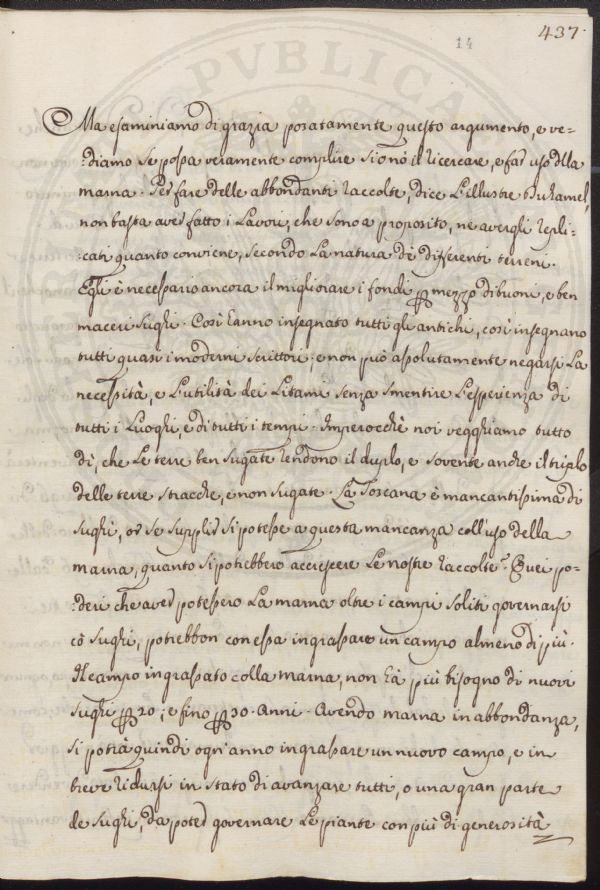 437.
14
PVBLICA
Ma esaminiamo di grazia posatamente questo argumento, e ve=
=diamo se possa veramente complire si o nò il ricercare, e far uso dlla
marna. Per fare delle abbondanti raccolte, dice l'illustre Duhamel,
non basta aver fatto i lavori, che sono a proposito, ne avergli repli=
=cati quanto conviene, secondo la natura di differenti terreni.
Egli è necessario ancora il migliorare i fondi p mezzo di buoni, e ben
maceri sughi. Così ànno insegnato tutti gli antichi, così insegnano
tutti quasi i moderni scrittori; e non può assolutamente negarsi la
necessità, e l'utilità dei litami senza smentire l'esperienza di
tutti i luoghi, e di tutti i tempi. Imperocchè noi vegghiamo tutto
dì, che le terre ben sugate rendono il duplo, e sovente anche il triplo
delle terre stracche, e non sugate. La Toscana è mancantissima di
sughi, or se supplir si potesse a questa mancanza coll'uso della
marna, quanto si potrebbero accrescere le nostre raccolte? Quei po=
=deri che aver potessero la marna oltre i campi soliti governarsi
cō sughi, potrebbon con essa ingrassare un campo almeno di più.
Il campo ingrassato colla marna, non à più bisogno di nuovi
sughi p 20; e fino p 30. Anni. Avendo marna in abbondanza,
si potrà quindi ogn'anno ingrassare un nuovo campo, e in
breve ridursi in stato di avanzare tutti, o una gran parte
de sughi, da poter governare le piante con più di generosità